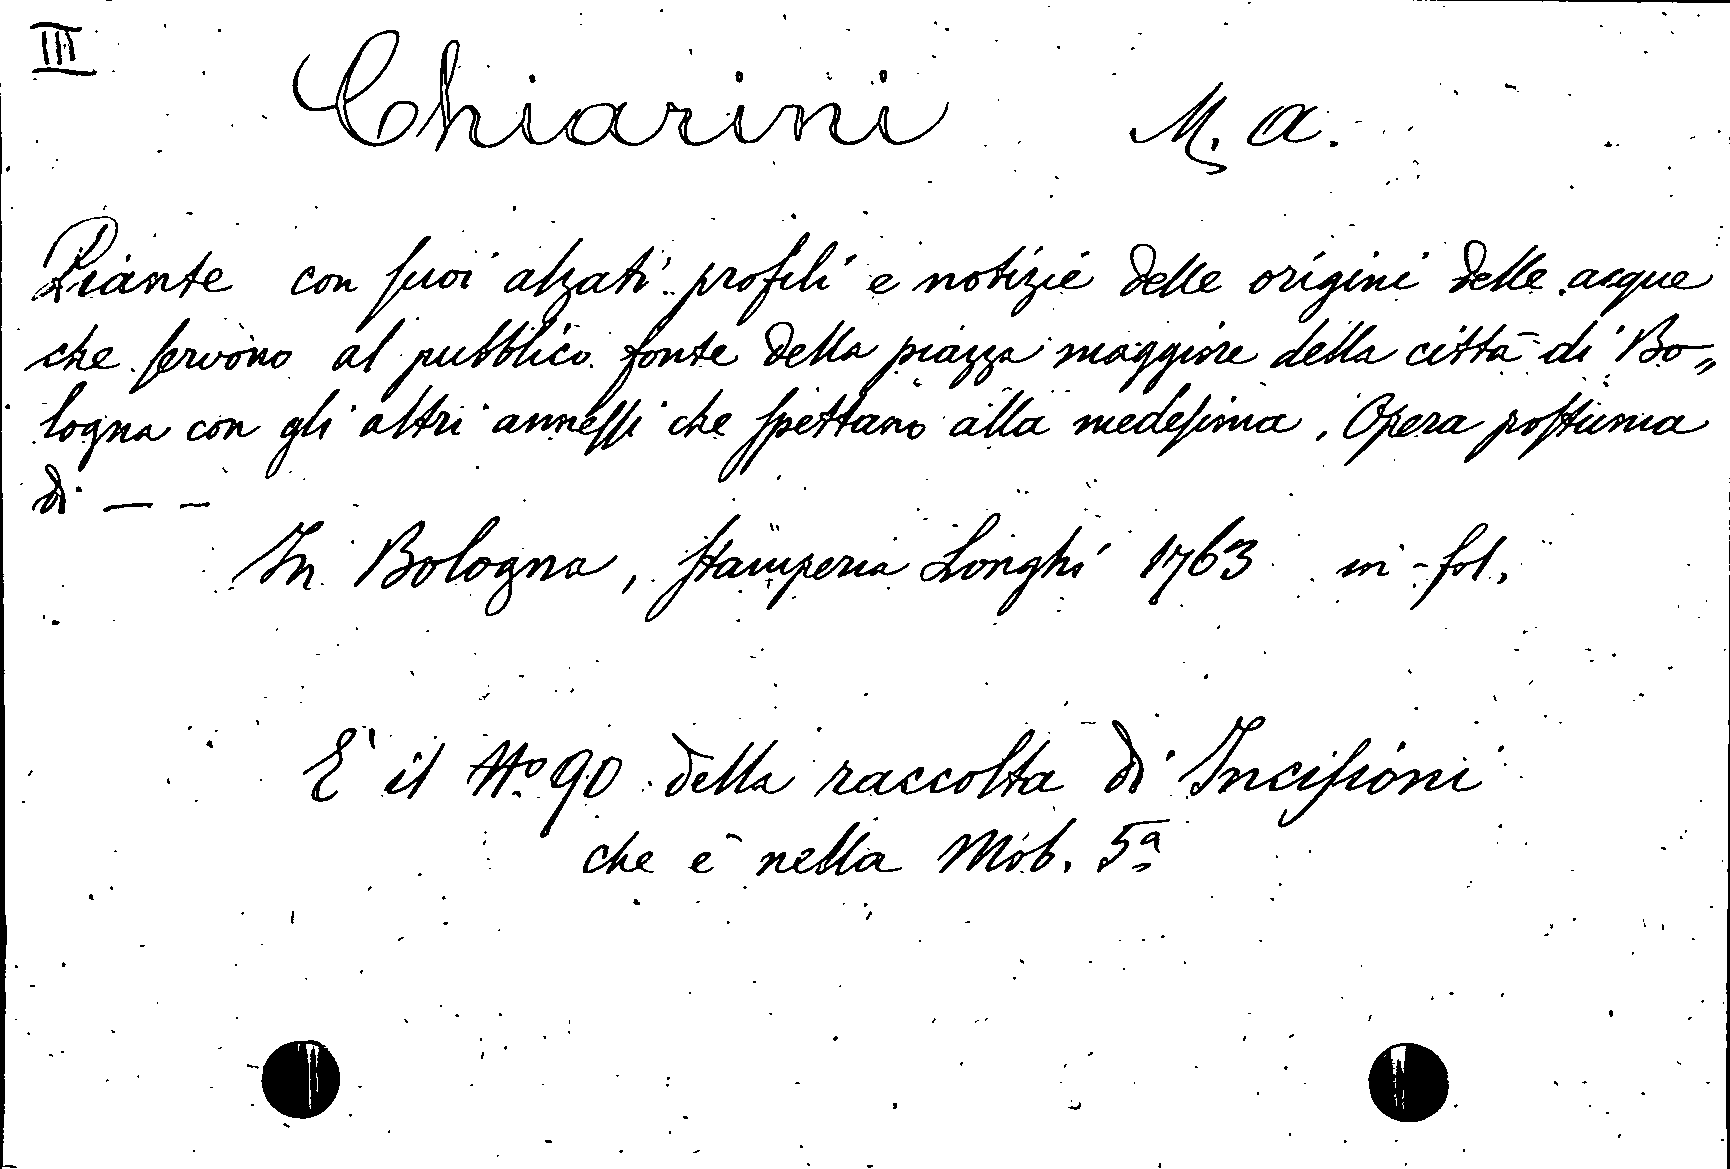 III
Chiarini M. A.
Piante con suoi alzati profili e notizie delle origini delle acque
che servono al pubblico fonte della piazza maggiore della città di Bo„
logna con gli altri annessi che spettano alla medesima. Opera postuma
di — —
In Bologna, stamperia Longhi 1763 in-fol.
E' il No 90 della raccolta di Incisioni
che è nella Mob. 5a